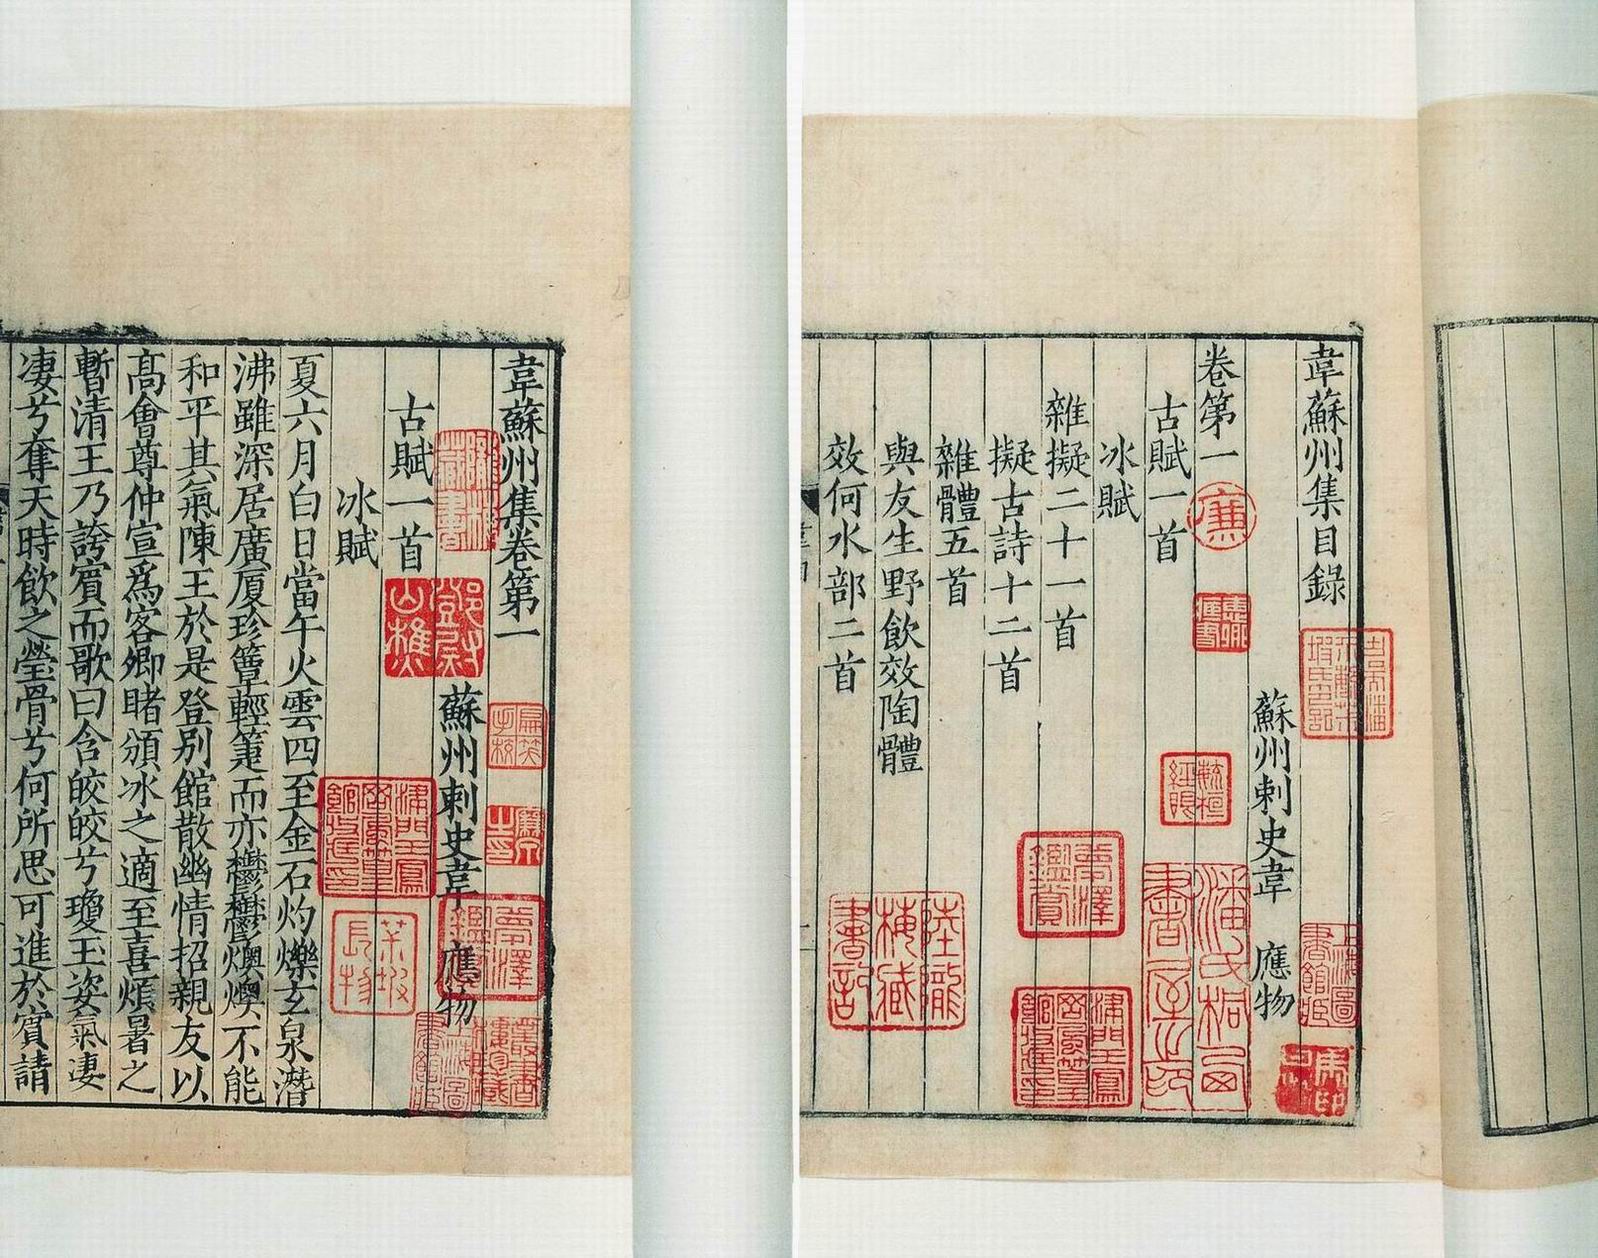 韋蘇州集目錄
蘇州刺史韋　應物
上海圖書館藏
卷第一
廉
潘氏桐西書屋之印
古賦一首
冰賦
夢澤鑑賞
雜擬二十一首
擬古詩十二首
雜體五首
與友生野飲效陶體
效何水部二首
韋蘇州集卷第一
蘇州刺史韋　應物
夢澤鑑賞
上海圖書館藏
鄧尉山樵
古賦一首
冰賦
夏六月白日當午火雲四至金石灼爍玄泉潛
沸雖深居廣厦珍簟輕箑而亦鬱鬱燠燠不能
和平其氣陳王於是登別館散幽情招親友以
髙會尊仲宣爲客卿睹頒冰之適至喜煩暑之
暫清王乃誇賓而歌曰含皎皎兮瓊玉姿氣凄
凄兮奪天時飲之瑩骨兮何所思可進於賓請